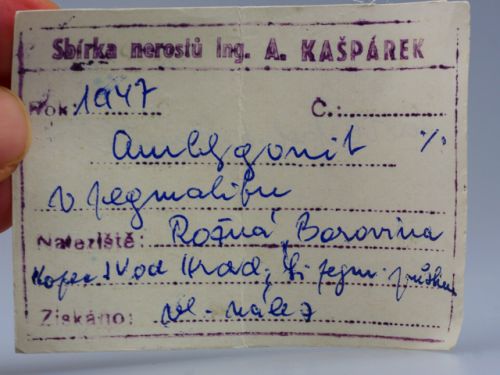 Sbírka nerostů Ing. A. KAŠPÁREK
Rok: 1947 Č.:
Amblygonit %
v pegmatitu
Naleziště: Rožná, Borovina
Kopec Hrad, Li pegm.
Získáno: vl. nález